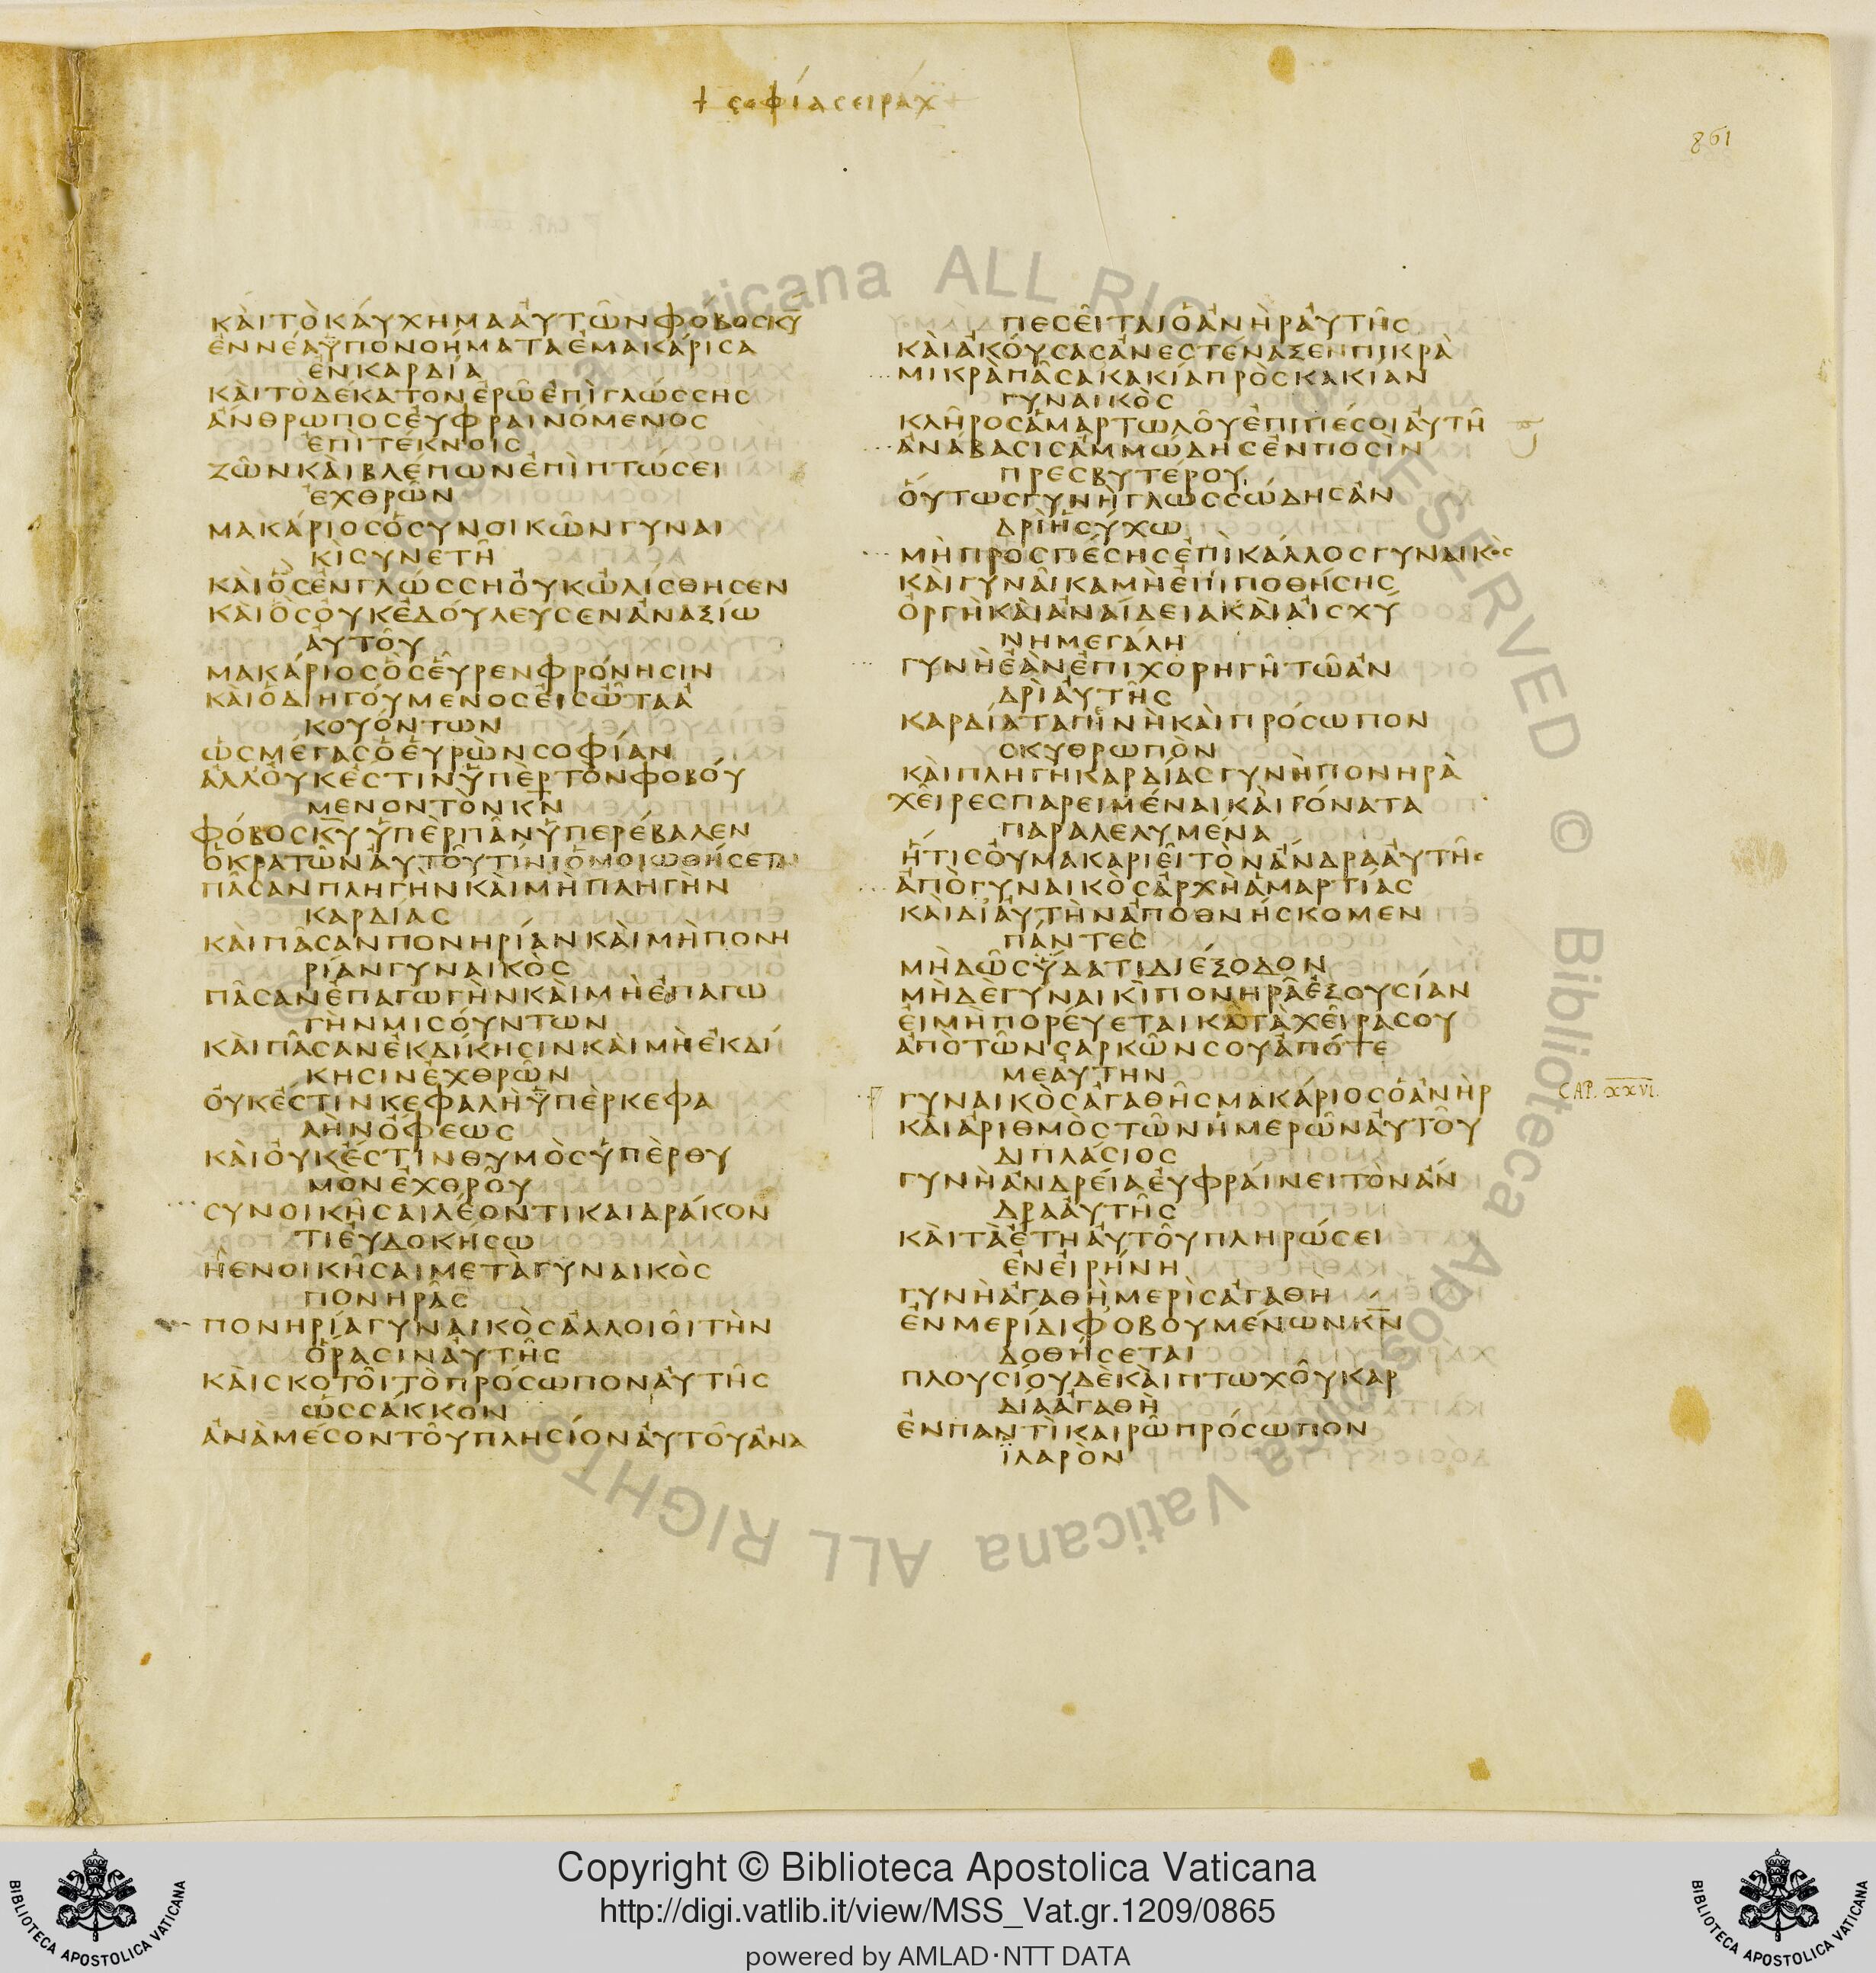 + σοφία σειράχ
861
ΚΑὶΤὸΚΑύΧΗΜΑΑὐΤῶΝΦόΒΟϹΚΥ
ἐΝΝέΑὙΠΟΝΟΗΜΑΤΑἐΜΑΚΑΡΙϹΑ
ἐΝΚΑΡΔίΑ
ΚΑὶΤὸΔέΚΑΤΟΝἐΡῶἐΠὶΓΛώϹϹΗϹ
ἄΝΘΡΩΠΟϹΕὐΦΡΑΙΝόΜΕΝΟϹ
ἐΠὶΤέΚΝΟΙϹ
ΖῶΝΚΑὶΒΛέΠΩΝἐΠὶΠΤώϹΕΙ
ἐΧΘΡῶΝ
ΜΑΚάΡΙΟϹὁϹΥΝΟΙΚῶΝΓΥΝΑΙ
ΚΙϹΥΝΕΤῆ
ΚΑὶὃϹἐΝΓΛώϹϹΗΟὐΚὠΛίϹΘΗϹΕΝ
ΚΑὶὃϹΟὐΚἐΔΟύΛΕΥϹΕΝἀΝΑΞίΩ
ΑὐΤΟῦ
ΜΑΚάΡΙΟϹὃϹΕὗΡΕΝΦΡόΝΗϹΙΝ
ΚΑὶὁΔΙΗΓΟύΜΕΝΟϹΕἰϹὦΤΑἀ
ΚΟΥόΝΤΩΝ
ὡϹΜέΓΑϹὁΕὑΡὼΝϹΟΦίΑΝ
ἀΛΛΟὐΚἔϹΤΙΝὙΠὲΡΤὸΝΦΟΒΟύ
ΜΕΝΟΝΤὸΝΚΝ
ΦόΒΟϹΚΥὙΠὲΡΠᾶΝὙΠΕΡέΒΑΛΕΝ
ὁΚΡΑΤῶΝΑὐΤΟῦΤίΝΙὁΜΟΙΩΘήϹΕΤΑΙ
ΠᾶϹΑΝΠΛΗΓὴΝΚΑὶΜὴΠΛΗΓὴΝ
ΚΑΡΔίΑϹ
ΚΑὶΠᾶϹΑΝΠΟΝΗΡίΑΝΚΑὶΜὴΠΟΝΗ
ΡίΑΝΓΥΝΑΙΚὸϹ
ΠᾶϹΑΝἐΠΑΓΩΓὴΝΚΑὶΜὴἐΠΑΓΩ
ΓὴΝΜΙϹΟύΝΤΩΝ
ΚΑὶΠᾶϹΑΝἐΚΔίΚΗϹΙΝΚΑὶΜὴἐΚΔί
ΚΗϹΙΝἐΧΘΡῶΝ
ΟὐΚἔϹΤΙΝΚΕΦΑΛὴὙΠὲΡΚΕΦΑ
ΛὴΝὄΦΕΩϹ
ΚΑὶΟὐΚἔϹΤΙΝΘΥΜὸϹὙΠὲΡΘΥ
ΜὸΝἐΧΘΡΟῦ
ϹΥΝΟΙΚῆϹΑΙΛέΟΝΤΙΚΑΙΔΡάΚΟΝ
ΤΙΕὐΔΟΚΗϹΩ
ἢἐΝΟΙΚῆϹΑΙΜΕΤὰΓΥΝΑΙΚὸϹ
ΠΟΝΗΡᾶϹ
ΠΟΝΗΡίΑΓΥΝΑΙΚὸϹἀΛΛΟΙΟῖΤὴΝ
ὅΡΑϹΙΝΑὐΤῆϹ
ΚΑὶϹΚΟΤΟῖΤὸΠΡόϹΩΠΟΝΑὐΤῆϹ
ὡϹϹάΚΚΟΝ
ἀΝὰΜέϹΟΝΤΟῦΠΛΗϹίΟΝΑὐΤΟῦἀΝΑ
ΠΕϹΕῖΤΑΙὁἀΝὴΡΑὐΤῆϹ
ΚΑὶἀΚΟύϹΑϹἀΝΕϹΤέΝΑΞΕΝΠΙΚΡὰ
ΜΙΚΡὰΠᾶϹΑΚΑΚίΑΠΡὸϹΚΑΚίΑΝ
ΓΥΝΑΙΚὸϹ
ΚΛῆΡΟϹἁΜΑΡΤΩΛΟῦἐΠΙΠέϹΟΙΑὐΤῆ
ἀΝάΒΑϹΙϹἀΜΜώΔΗϹἐΝΠΟϹὶΝ
ΠΡΕϹΒΥΤέΡΟΥ
ΟὕΤΩϹΓΥΝὴΓΛΩϹϹώΔΗϹἀΝ
ΔΡὶἡϹύΧΩ
ΜὴΠΡΟϹΠέϹΗϹἐΠὶΚάΛΛΟϹΓΥΝΑΙΚὸϹ
ΚΑὶΓΥΝΑῖΚΑΜὴἐΠΙΠΟΘήϹΗϹ
ὀΡΓὴΚΑὶἀΝΑίΔΕΙΑΚΑὶΑἰϹΧύ
ΝΗΜΕΓάΛΗ
ΓΥΝὴἐὰΝἐΠΙΧΟΡΗΓῆΤῶἀΝ
ΔΡὶΑὐΤῆϹ
ΚΑΡΔίΑΤΑΠΙΝὴΚΑὶΠΡόϹΩΠΟΝ
ϹΚΥΘΡΩΠὸΝ
ΚΑὶΠΛΗΓὴΚΑΡΔίΑϹΓΥΝὴΠΟΝΗΡὰ
ΧΕῖΡΕϹΠΑΡΕΙΜέΝΑΙΚΑὶΓόΝΑΤΑ
ΠΑΡΑΛΕΛΥΜέΝΑ
ἥΤΙϹΟὐΜΑΚΑΡΙΕῖΤὸΝἄΝΔΡΑΑὐΤῆϹ
ἀΠὸΓΥΝΑΙΚὸϹἀΡΧὴἁΜΑΡΤίΑϹ
ΚΑὶΔΙΑὐΤὴΝἀΠΟΘΝήϹΚΟΜΕΝ
ΠάΝΤΕϹ
ΜὴΔῶϹὕΔΑΤΙΔΙέΞΟΔΟΝ
ΜΗΔὲΓΥΝΑΙΚὶΠΟΝΗΡᾶἐΞΟΥϹίΑΝ
ΕἰΜὴΠΟΡΕύΕΤΑΙΚΑΤὰΧΕῖΡΑϹΟΥ
ἀΠὸΤῶΝϹΑΡΚῶΝϹΟΥἀΠόΤΕ
ΜΕΑὐΤΗΝ
CAP. XXVI.
ΓΥΝΑΙΚὸϹἀΓΑΘῆϹΜΑΚάΡΙΟϹὁἀΝὴΡ
ΚΑὶἀΡΙΘΜὸϹΤῶΝἡΜΕΡῶΝΑὐΤΟῦ
ΔΙΠΛάϹΙΟϹ
ΓΥΝὴἀΝΔΡΕίΑΕὐΦΡΑίΝΕΙΤὸΝἄΝ
ΔΡΑΑὐΤῆϹ
ΚΑὶΤὰἔΤΗΑὐΤΟῦΠΛΗΡώϹΕΙ
ἐΝΕἰΡήΝΗ
ΓΥΝὴἀΓΑΘὴΜΕΡὶϹἀΓΑΘὴ
ἐΝΜΕΡίΔΙΦΟΒΟΥΜέΝΩΝΚΝ
ΔΟΘήϹΕΤΑΙ
ΠΛΟΥϹίΟΥΔὲΚΑὶΠΤΩΧΟῦΚΑΡ
ΔίΑἀΓΑΘὴ
ἐΝΠΑΝΤὶΚΑΙΡῶΠΡόϹΩΠΟΝ
ἹΛΑΡὸΝ
Copyright © Biblioteca Apostolica Vaticana
http://digi.vatlib.it/view/MSS_Vat.gr.1209/0865
powered by AMLAD·NTT DATA
BIBLIOTECA APOSTOLICA VATICANA
BIBLIOTECA APOSTOLICA VATICANA